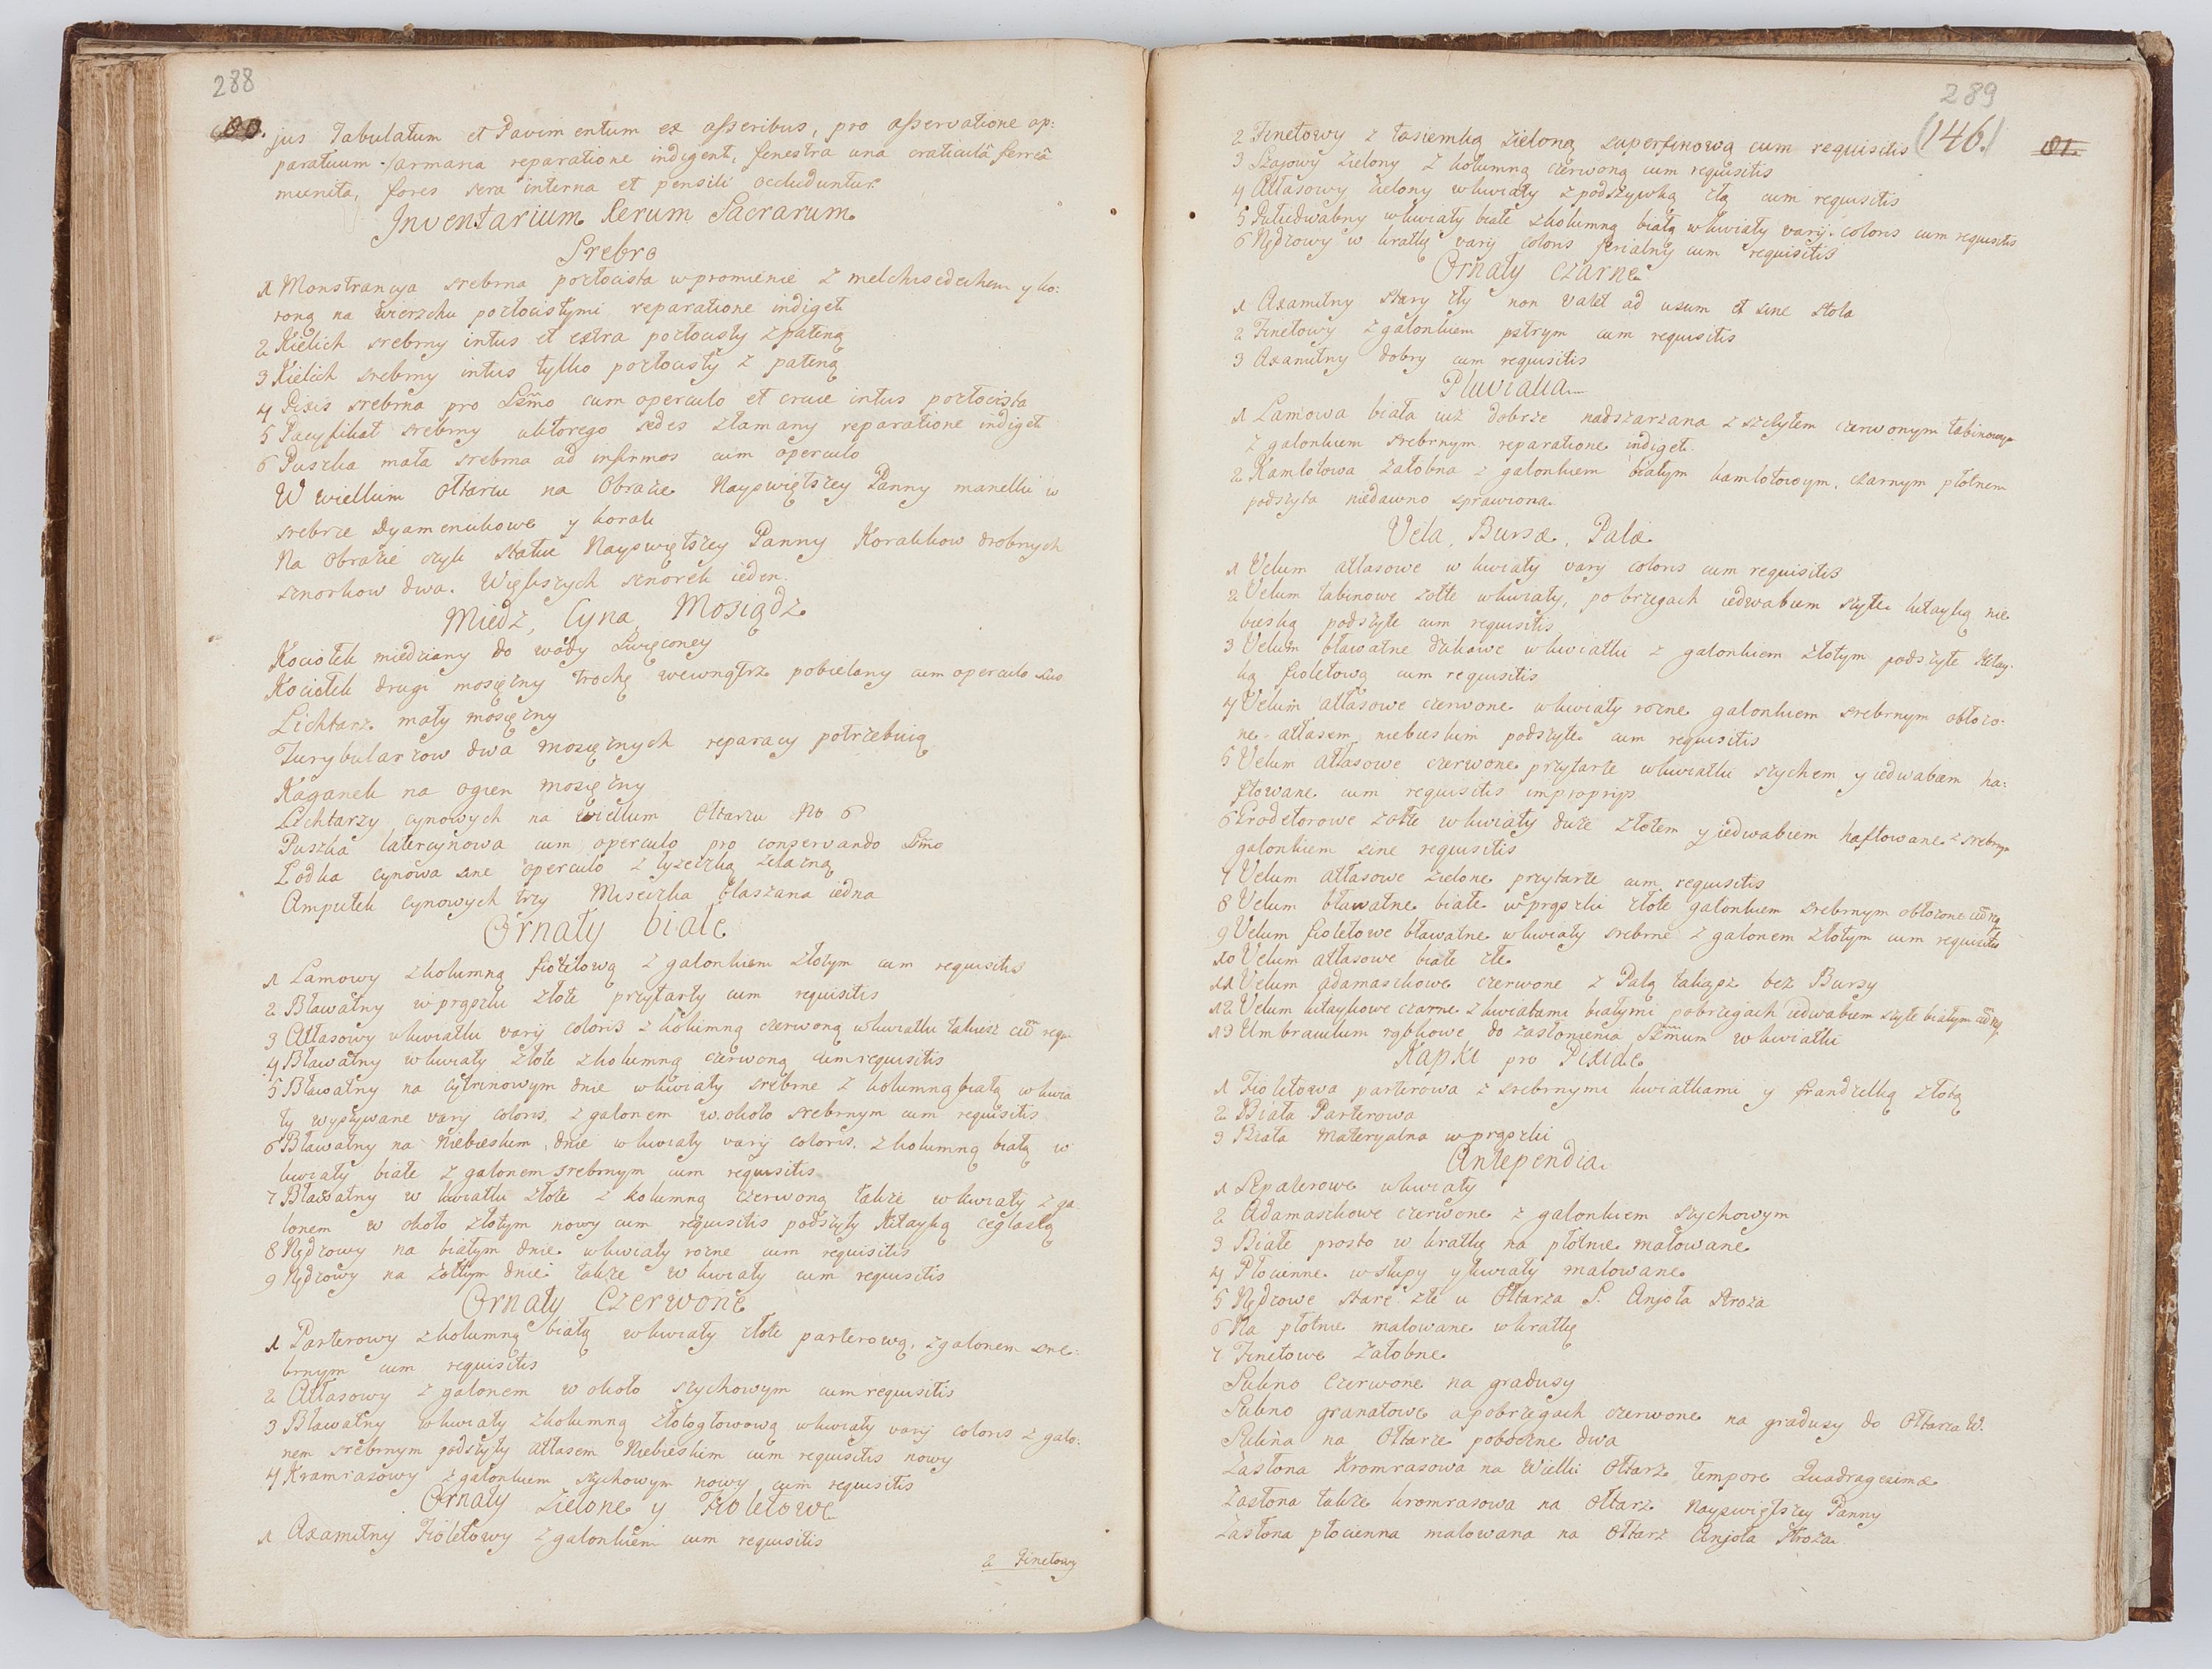 288
80.
jus Tabulatum et Pavimentum ex asseribus, pro asservatione ap:
paratuum armaria reparatione indigent, fenestra una craticulâ ferreâ
munita, fores sera interna et pensili occluduntur.
Inventarium Rerum Sacrarum
Srebro
1 Monstrancya srebrna pozłocista w promienie z melchisedechem y ko:
roną na wierzchu pozłocistymi reparatione indiget
2 Kielich srebrny intus et extra pozłocisty z pateną
3 Kielich srebrny intus tylko pozłocisty z pateną
4 Pixis srebrna pro Ssmo cum operculo et cruce intus pozłocista
5 Pacyfikał srebrny uktorego sedes złamany reparatione indiget
6 Puszka mała srebrna ad infirmos cum operculo
W wielkim Ołtarzu na Obrazie Nayswiętszey Panny manelki w
srebrze Dyamencikowe y korale
Na Obrazie czyli Statui Nayswiętszey Panny Koralikow drobnych
sznorkow dwa. Większych sznorek ieden.
Miedz, Cyna, Mosiądz
Kociołek miedziany do wody Swięconey
Kociołek drugi mosiężny trochę wewnątrz pobielany cum operculo suo
Lichtarz mały mosiężny
Turybularzow dwa mosiężnych reparacy potrzebuią
Kaganek na ogien mosiężny
Lichtarzy cynowych na wielkim Ołtarzu No 6
Puszka latercynowa cum operculo pro conservando Ssmo
Lodka cynowa sine operculo z łyzeczką żelazną
Ampułek cynowych trzy Miseczka blaszana iedna
Ornaty białe
1 Lamowy z kolumną fioletową z galonkiem złotym cum requisitis
2 Bławatny w prązki złote przytarty cum requisitis
3 Atłasowy w kwiatki varij coloris z kolumną czerwoną w kwiatki takiesz cum requi
4 Bławatny w kwiaty złote z kolumną czerwoną cum requisitis
5 Bławatny na cytrinowym dnie w kwiaty srebrne z kolumną białą w kwia
ty wyszywane varij coloris, z galonem w około srebrnym cum requisitis
6 Bławatny na Niebieskim dnie w kwiaty varij coloris, z kolumną białą w
kwiaty białe z galonem srebrnym cum requisitis
7 Bławatny w kwiatki złote z kolumną czerwoną także w kwiaty z ga
lonem w około złotym nowy cum requisitis podszyty Kitayką ceglastą
8 Nędzowy na białym dnie w kwiaty rozne cum requisitis
9 Nędzowy na żołtym dnie także w kwiaty cum requisitis
Ornaty Czerwone
1 Parterowy z kolumną białą w kwiaty złote parterową, z galonem sre:
brnym cum requisitis
2 Atłasowy z galonem w około szychowym cum requisitis
3 Bławatny w kwiaty z kolumną złotogłowową w kwiaty varij coloris z galo:
nem srebrnym podszyty atłasem Niebieskim cum requisitis nowy
4 Kramrasowy z galonkiem szychowym nowy cum requisitis
Ornaty Zielone y Fioletowe
1 Axamitny Fioletowy z galonkiem cum requisitis
2 Finetowy
289
(146.)
81.
2 Finetowy z tasiemką zieloną superfinową cum requisitis
3 Szajowy zielony z kolumną czerwoną cum requisitis
4 Atłasowy zielony w kwiaty z podszywką złą cum requisitis
5 Pułiedwabny w kwiaty białe z kolumną białą w kwiaty varij coloris cum requisitis
6 Nędzowy w kratkę varij coloris ferialny cum requisitis
Ornaty Czarne
1 Axamitny stary zły non valet ad usum et sine stola
2 Finetowy z galonkiem pstrym cum requisitis
3 Axamitny dobry cum requisitis
Pluvialia
1 Lamowa biała iuż dobrze nadszarzana z szczytem czerwonym tabinowym
z galonkiem srebrnym reparatione indiget
2 Kamlotowa Załobna z galonkiem białym kamlotowym, czarnym płotnem
podszyta niedawno sprawiona
Vela, Bursæ, Palæ
1 Velum atłasowe w kwiaty varij coloris cum requisitis
2 Velum tabinowe zołte w kwiaty, po brzegach iedwabiem szyte kitayką nie
bieską podszyte cum requisitis
3 Velum bławatne dzikowe w kwiatki z galonkiem złotym podszyte Kitay:
ką fioletową cum requisitis
4 Velum atłasowe czerwone w kwiaty rozne galonkiem srebrnym obłozo:
ne atłasem niebieskim podszyte cum requisitis
5 Velum atłasowe czerwone przytarte w kwiatki szychem y iedwabiem ha:
ftowane cum requisitis impropriis
6 Grodetorowe zołte w kwiaty duże złotem y iedwabiem haftowane z srebrnym
galonkiem sine requisitis
7 Velum atłasowe zielone przytarte cum requisitis
8 Velum bławatne białe w prązki złote galonkiem srebrnym obłozone cum req
9 Velum fioletowe bławatne w kwiaty srebrne z galonem złotym cum requisitis
10 Velum atłasowe białe złe
11 Velum adamaszkowe czerwone z Palą takąsz bez Bursy
12 Velum kitaykowe czarne z kwiatami białymi po brzegach iedwabiem szyte białym cum req
13 Umbraculum rąbkowe do zasłonienia Ssmum w kwiatki
Kapki pro Pixide
1 Fioletowa parterowa z srebrnymi kwiatkami y frandzelką złotą
2 Biała Parterowa
3 Biała Materyalna w prązki
Antependia
1 Szpalerowe w kwiaty
2 Adamaszkowe czerwone z galonkiem szychowym
3 Białe prosto w kratkę na płotnie malowane
4 Płocienne w słupy y kwiaty malowane
5 Nędzowe stare złe u Ołtarza S. Anjoła Stroza
6 Na płotnie malowane w kratkę
7 Finetowe Załobne
Sukno Czerwone na gradusy
Sukno granatowe a po brzegach czerwone na gradusy do Ołtarza W.
Sukna na Ołtarze poboczne dwa
Zasłona Kromrasowa na Wielki Ołtarz tempore Quadragesimæ
Zasłona także kromrasowa na Ołtarz Nayswiętszey Panny
Zasłona płocienna malowana na Ołtarz Anjoła Stroza